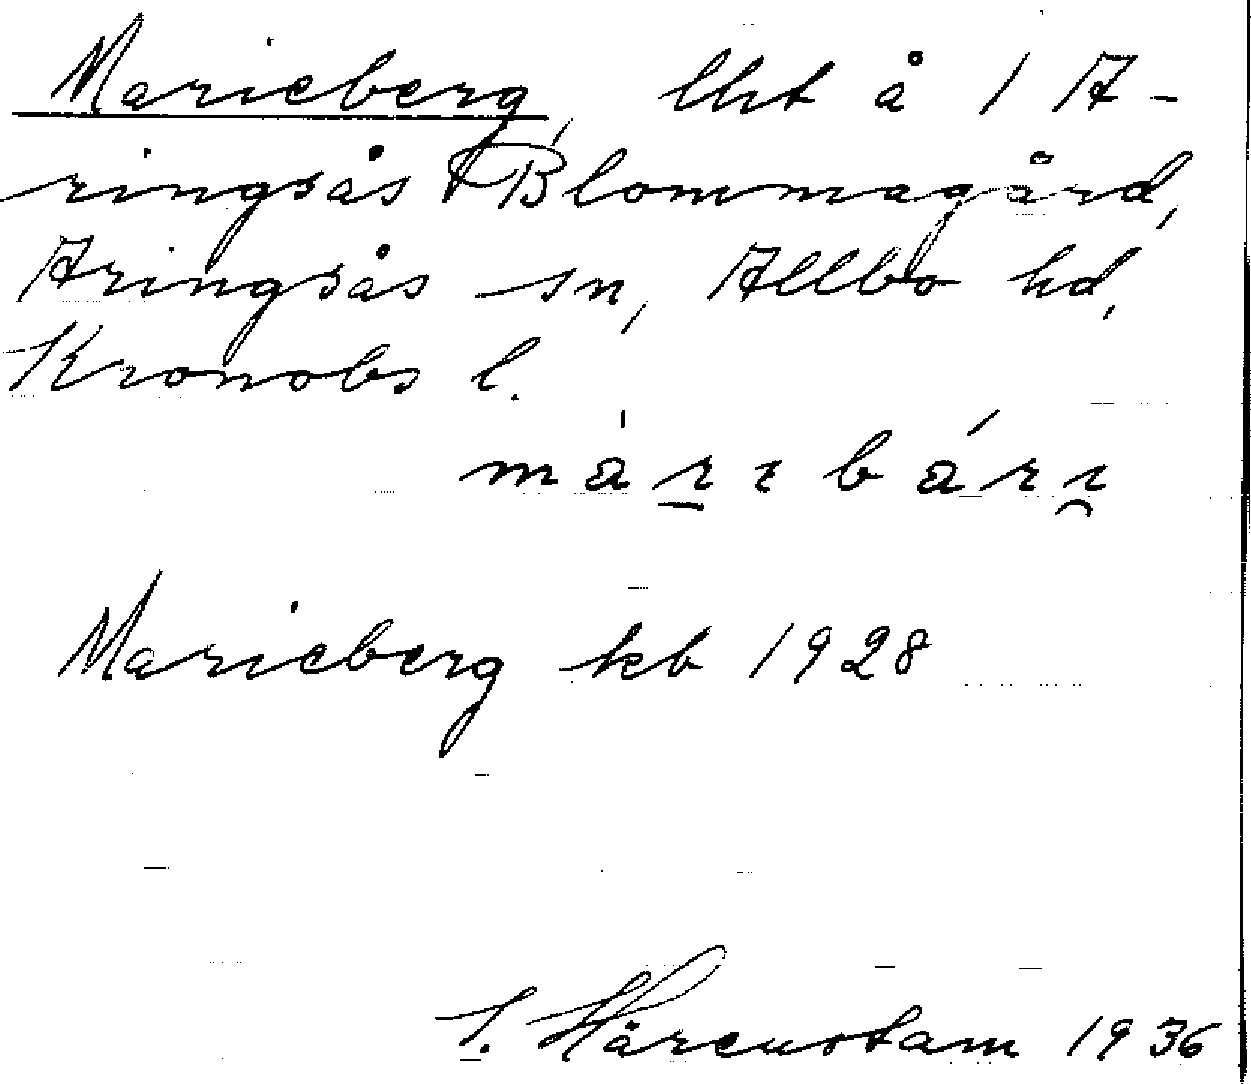 Marieberg, lht å 1 A-
ringsås Blommagård,
Aringsås sn, Allbo hd,
Kronobs l.
Marieberg kb 1928
S. Härenstam 1936